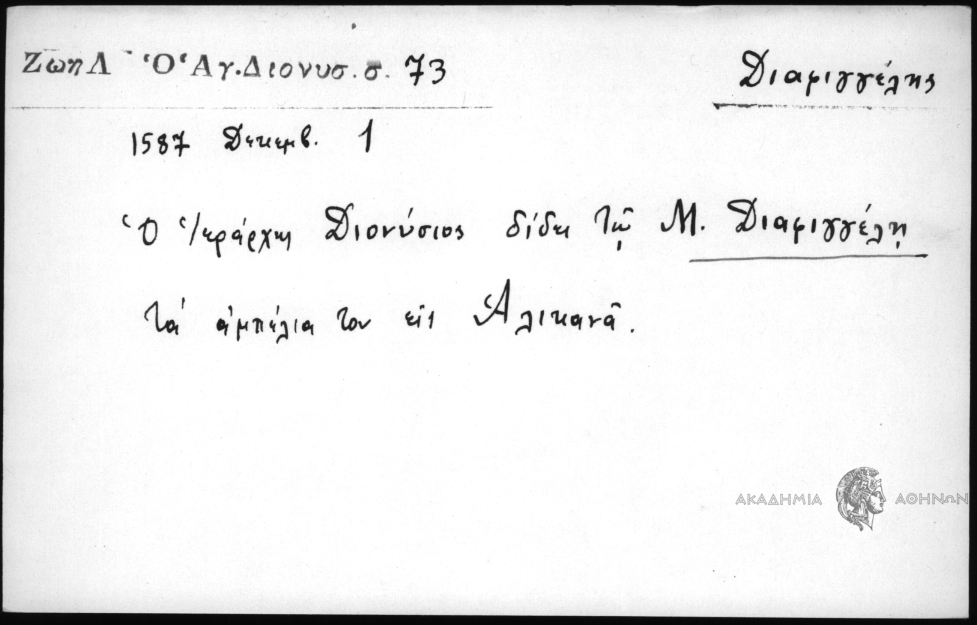 Ζώη Λ Ὁ Ἁγ. Διονυσ. σ. 73
Διαφιγγέλης
1587 Δεκεμβ. 1
Ὁ Ἱεράρχης Διονύσιος δίδει τῷ Μ. Διαφιγγέλῃ
τά ἀμπέλια του εἰς Ἀλικανᾶ.
ΑΚΑΔΗΜΙΑ ΑΘΗΝΩΝ